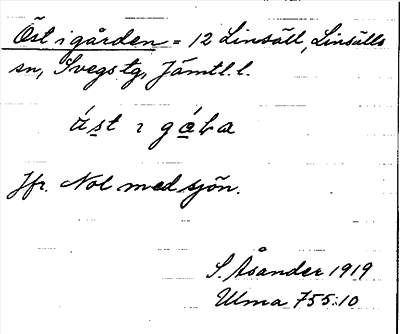 Öst i gården = 12 Linsäll, Linsälls
sn, Svegs tg, Jämtl. l.
öst i gába
Jfr. Nol med sjön.
S. Åsander 1919
Ulma 755:10